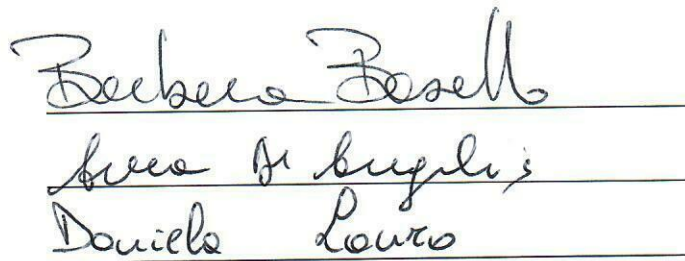 Barbara Bosello
Anna De Angelis
Daniela Lauro